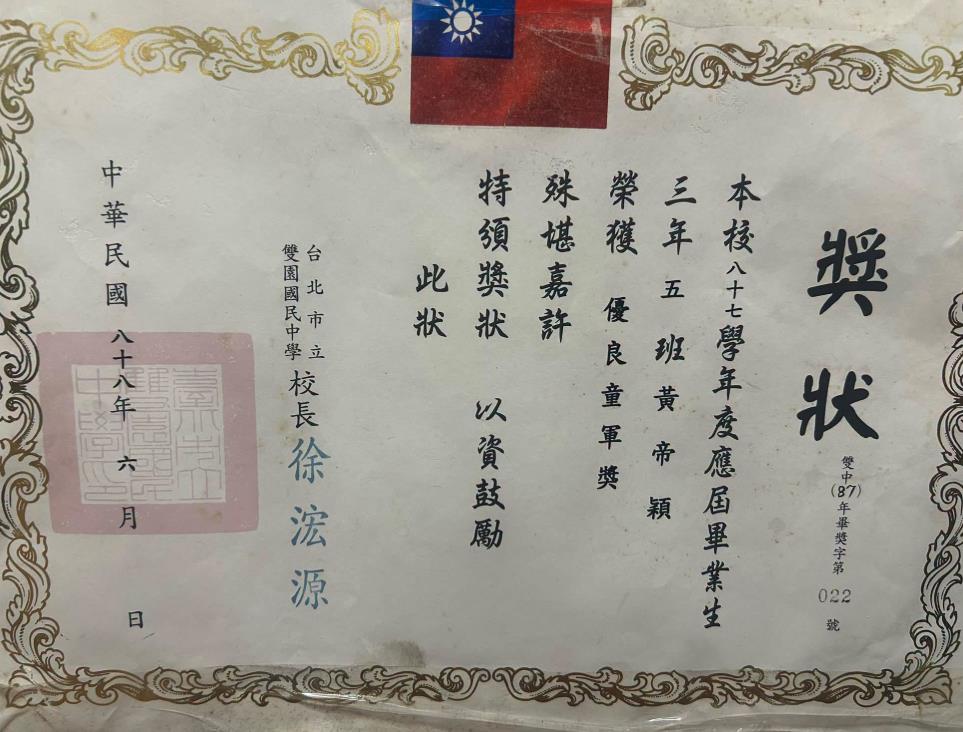 獎狀
雙中(87)年畢獎字第022號
本校八十七學年度應屆畢業生
三年五班黃帝穎
榮獲 優良童軍獎
殊堪嘉許
特頒獎狀 以資鼓勵
此狀
台北市立
雙園國民中學
校長徐浤源
中華民國八十八年六月 日